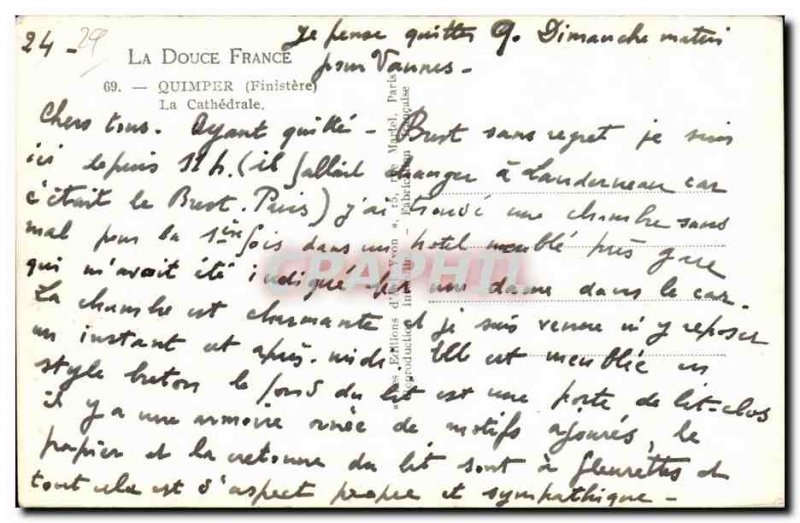 24 - 29
je pense quitter Q. Dimanche matin
pour Vannes -
LA DOUCE FRANCE
69. — QUIMPER (Finistère)
La Cathédrale.
Chers tous. Ayant quitté - Brest sans regret je suis
ici depuis 12h. (il fallait changer à Landerneau car
c'était le Brest. Paris) j'ai trouvé une chambre sans
mal pour la 1ère fois dans un hotel meublé près gare
qui m'avait été indiqué par une dame dans le car.
La chambre est charmante et je suis venue m'y reposer
un instant cet après-midi. Elle est meublée en
style breton le fond du lit est une porte de lit-clos
il y a une armoire ornée de motifs ajourés, le
papier et la cretonne du lit sont à fleurettes et
tout cela est d'aspect propre et sympathique -
Editions d'Art "Yvon", 15, rue Martel, Paris
Reproduction Fabrication Française